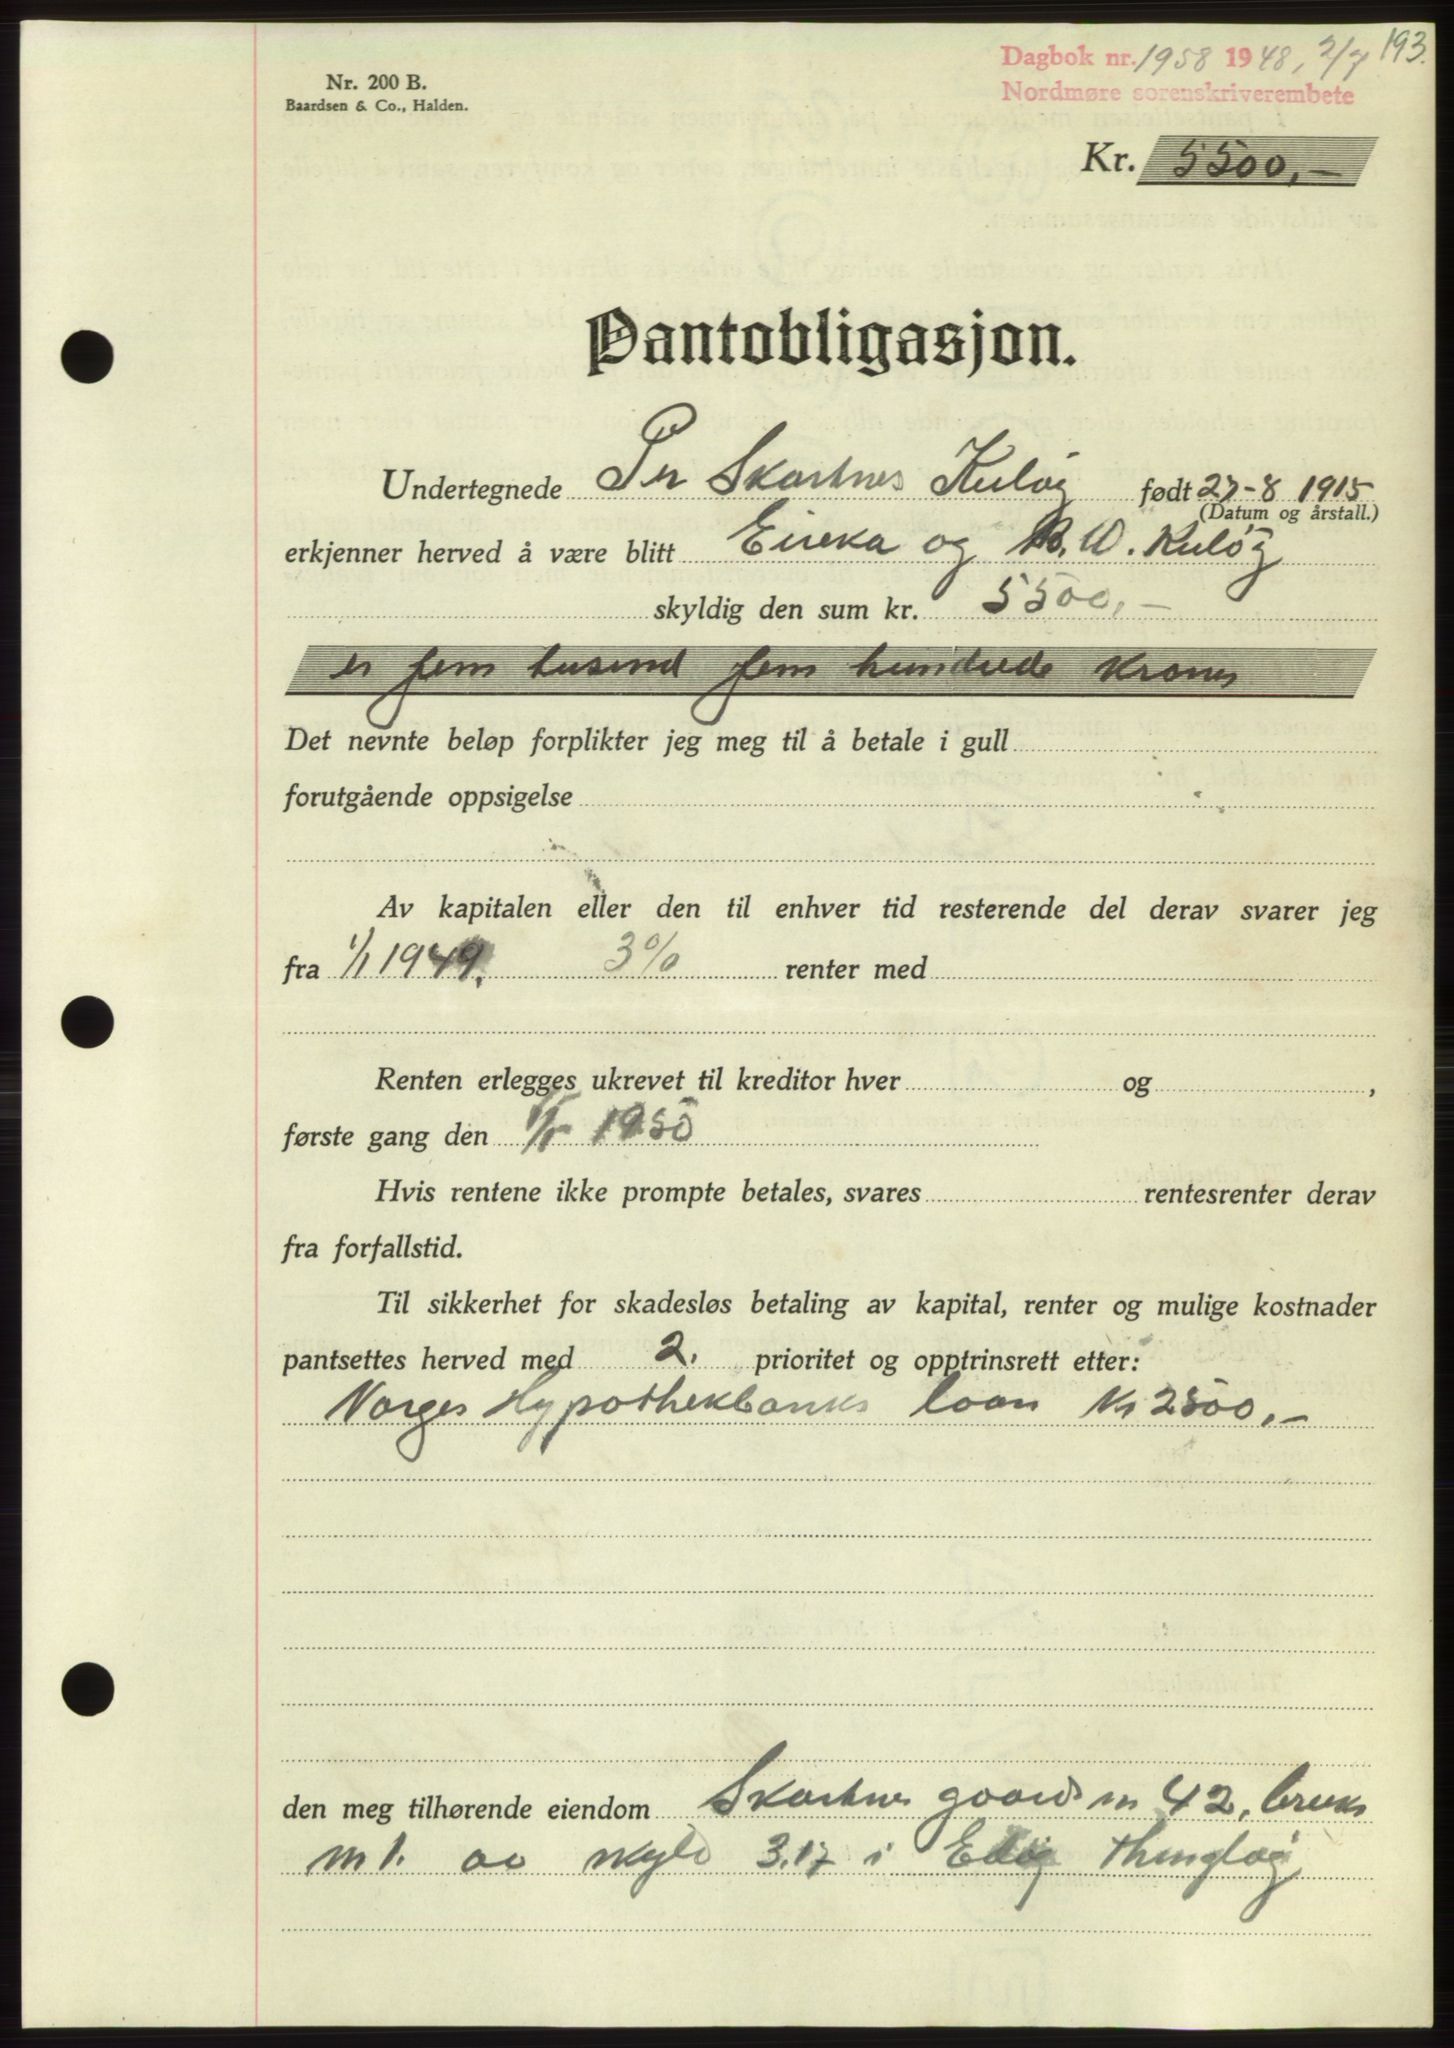 Dagbok nr. 1958 1948, 2/7 193.
Nordmøre sorenskriverembete
Nr. 200 B.
Baardsen & Co., Halden.
Kr. 5500,-
Pantobligasjon.
Undertegnede Per Skarsnes Kuløy født 27-8 1915
(Datum og årstall.)
erkjenner herved å være blitt Eireka og B. W. Kuløy
skyldig den sum kr. 5500,-
er fem tusend fem hundrede kroner
Det nevnte beløp forplikter jeg meg til å betale i gull
forutgående oppsigelse
Av kapitalen eller den til enhver tid resterende del derav svarer jeg
fra 1/1 1949. 3% renter med
Renten erlegges ukrevet til kreditor hver og ,
første gang den 1/1 1950
Hvis rentene ikke prompte betales, svares rentesrenter derav
fra forfallstid.
Til sikkerhet for skadesløs betaling av kapital, renter og mulige kostnader
pantsettes herved med 2. prioritet og opptrinsrett etter:
Norges Hypothekbanks loan Kr 2500,-
den meg tilhørende eiendom Skarsnes gaards nr 42, bruks
nr 1. av skyld 3.17 i Edøy thinglag